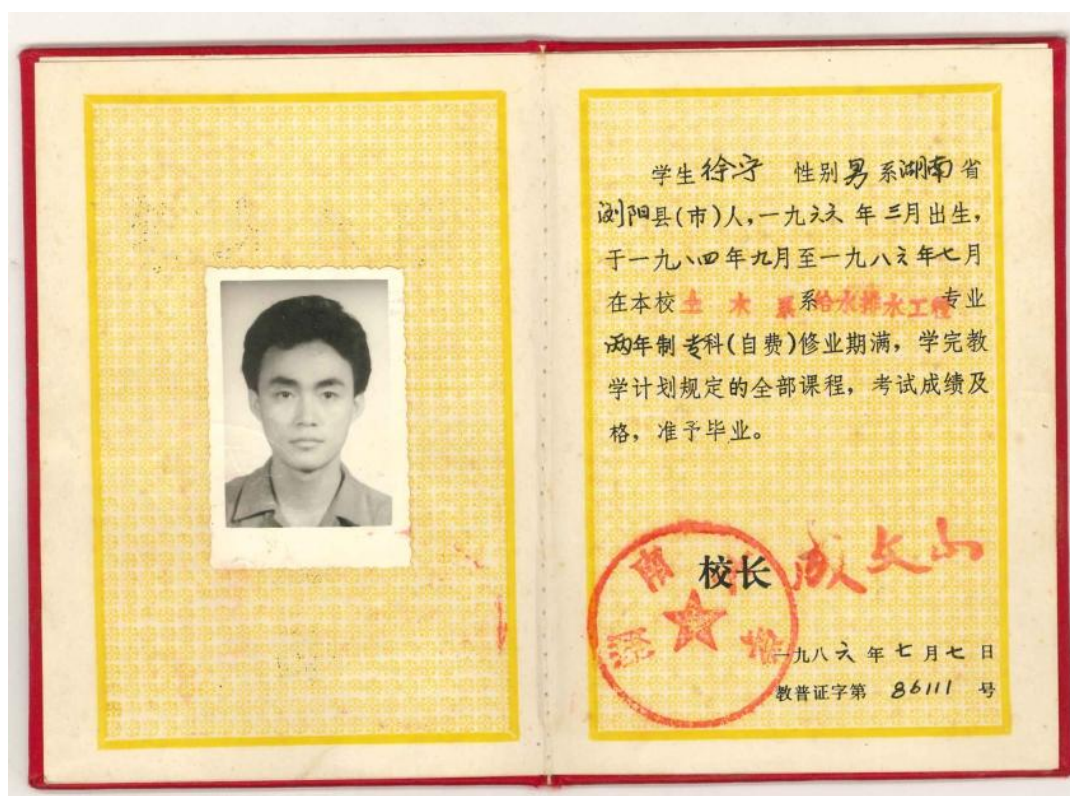 学生徐宁 性别男系湖南省
浏阳县(市)人,一九六六年三月出生,
于一九八四年九月至一九八六年七月
在本校土木系系给水排水工程专业
两年制专科(自费)修业期满,学完教
学计划规定的全部课程,考试成绩及
格,准予毕业。
校长 成文山
湖南大学
一九八六年七月七日
教普证字第 86111 号